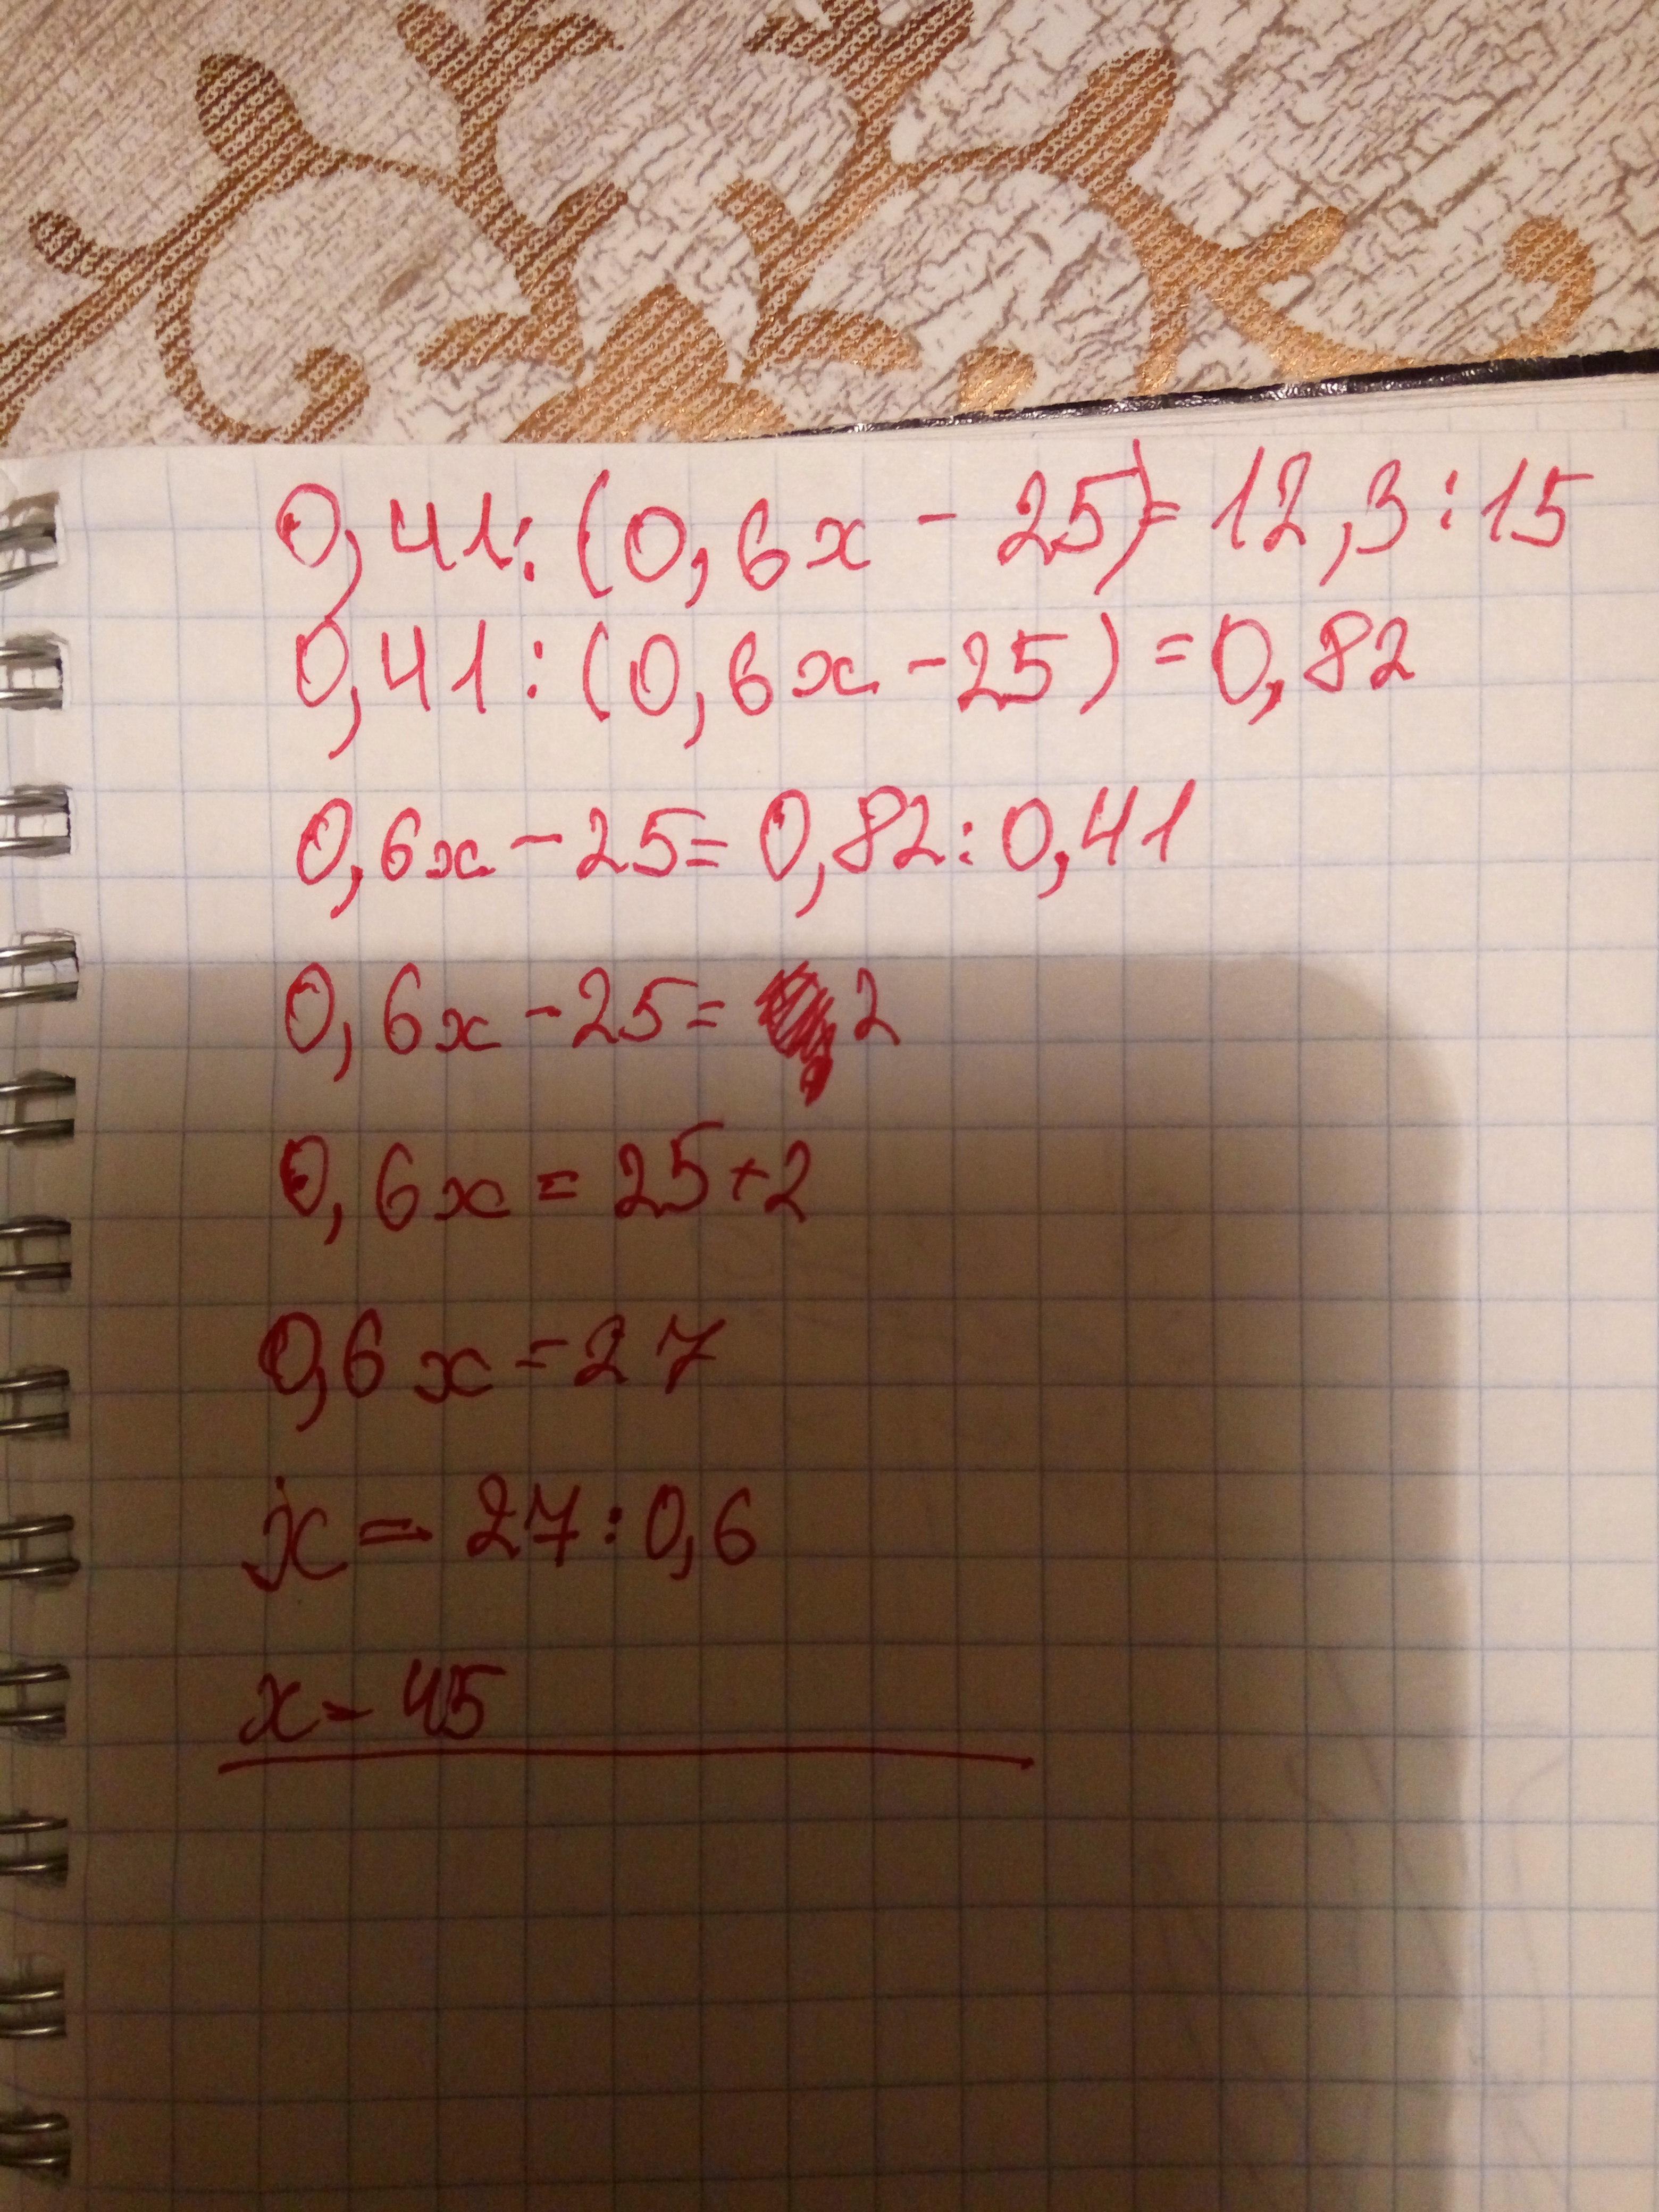 0,41:(0,6x - 25)= 12,3:15
0,41:(0,6x-25)=0,82
0,6x-25=0,82:0,41
0,6x-25= 2
0,6x=25+2
0,6x=27
x=27:0,6
x=45